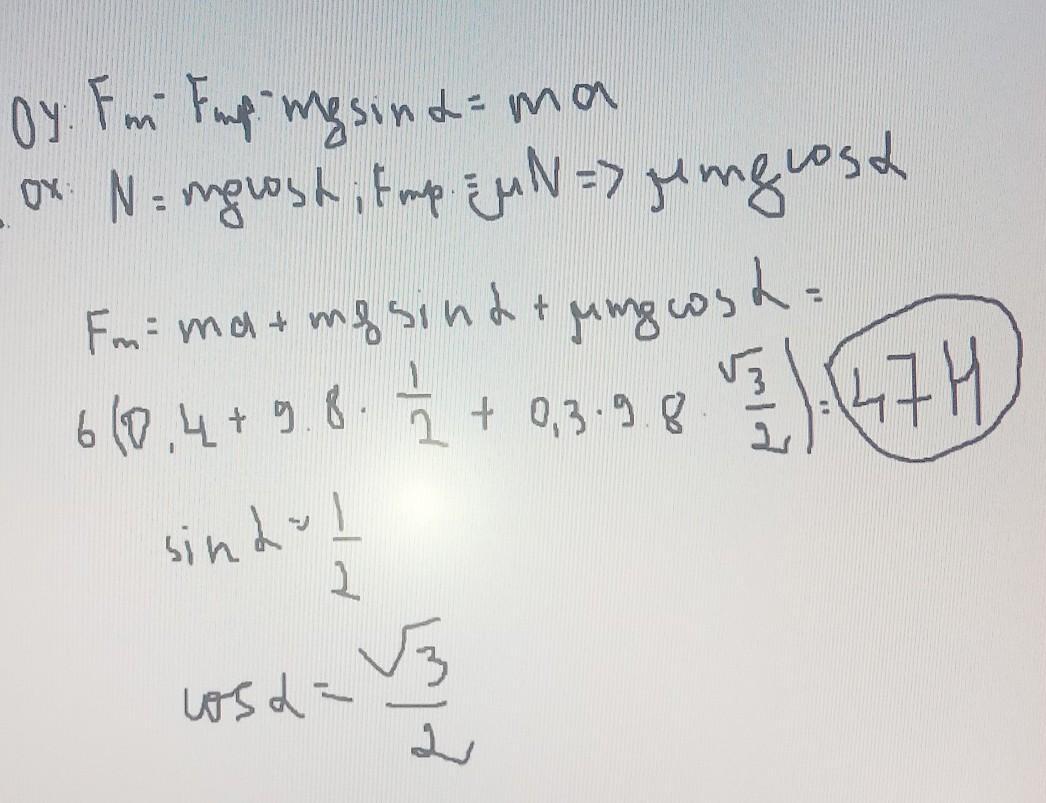 Oy: Fm - Fmp - mg sin α = ma
ox: N = mg cos α; Fmp. = μN => μmg cos α
Fm = ma + mg sin α + μmg cos α =
6(0,4 + 9.8 · 1/2 + 0,3 · 9.8 · √3/2) = 47H
sin α = 1/2
cos α = √3/2